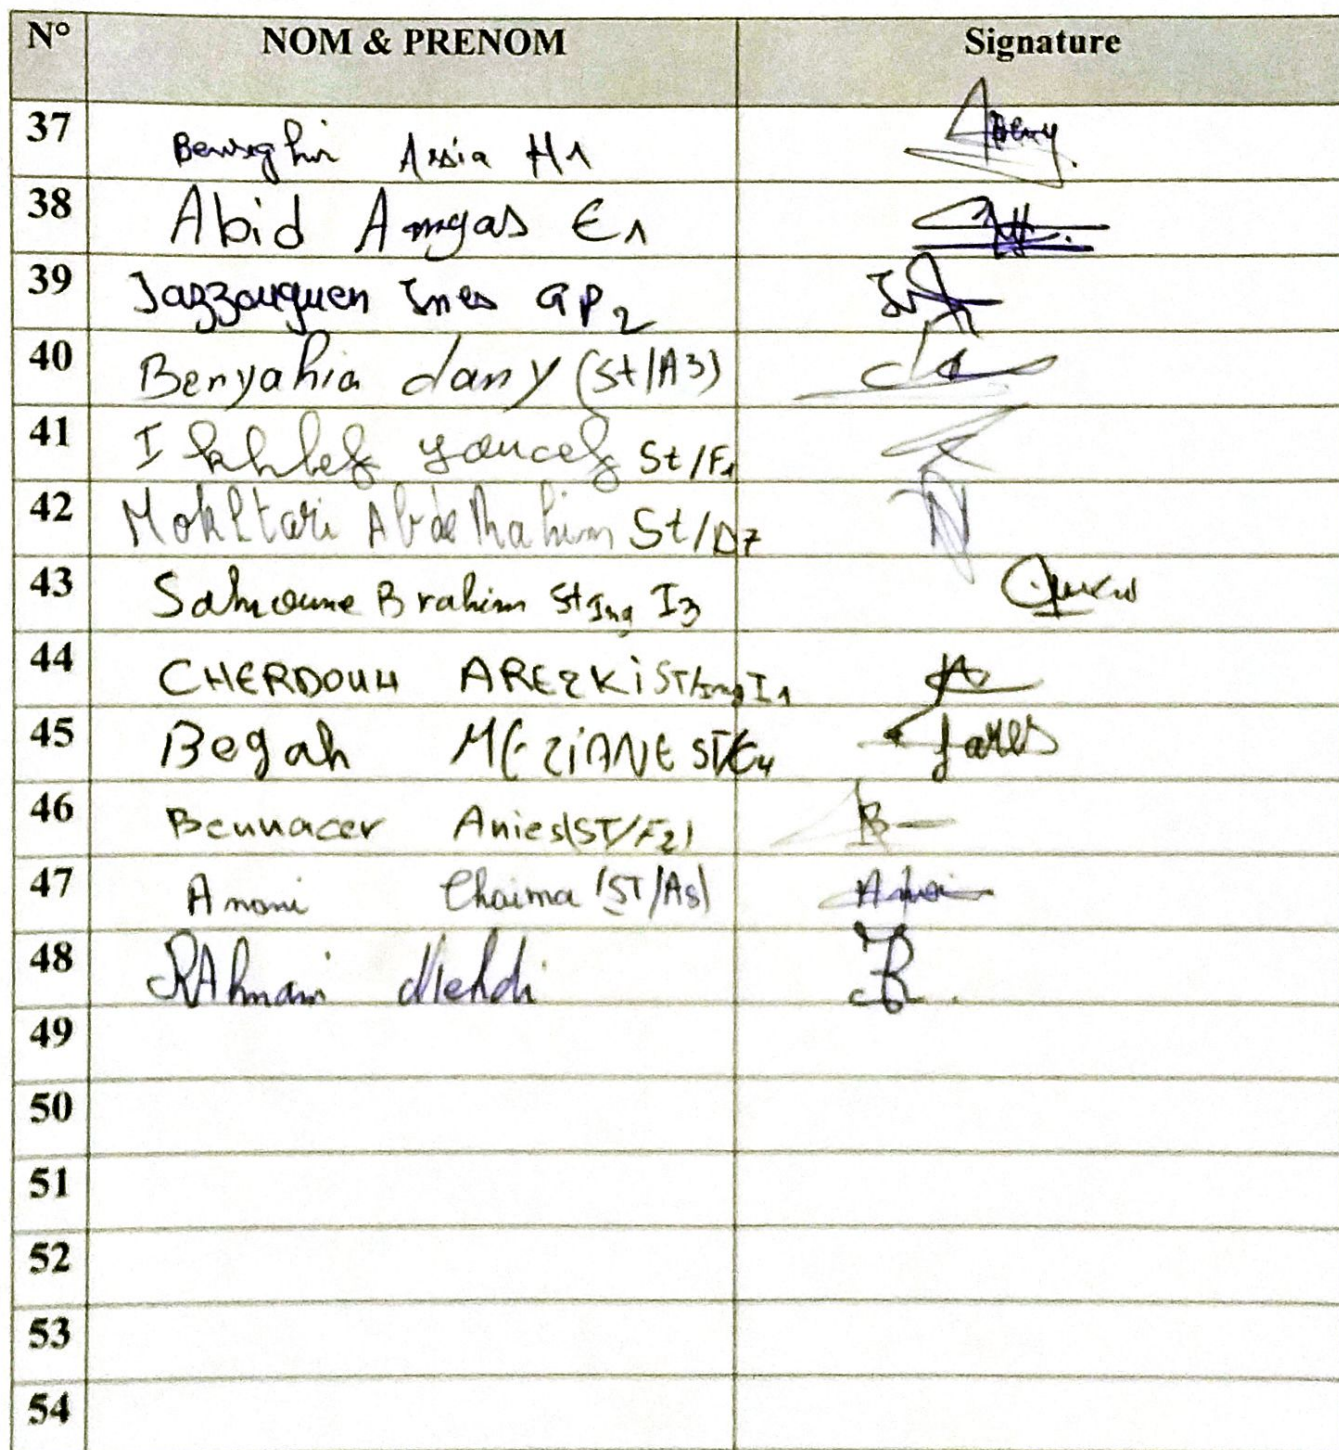 N° NOM & PRENOM Signature
37 Benseghir Assia H1
38 Abid Amgas E1
39 Iazzouguen Ines GP2
40 Benyahia dany (St/A3)
41 Ikhlef youcef St/F1
42 Mokhtari Abdelhahim St/D7
43 Sahnoune Brahim St Ing I3
44 CHERDOUH AREZKi ST/Ing I1
45 Begah MEZiANE ST/E4 fares
46 Bennacer Anies (ST/F2) B
47 Amani Chaima (ST/A5)
48 RAhmani Mehdi
49
50
51
52
53
54